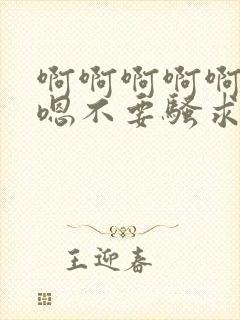 啊啊啊啊啊
嗯不要骚求
王迎春